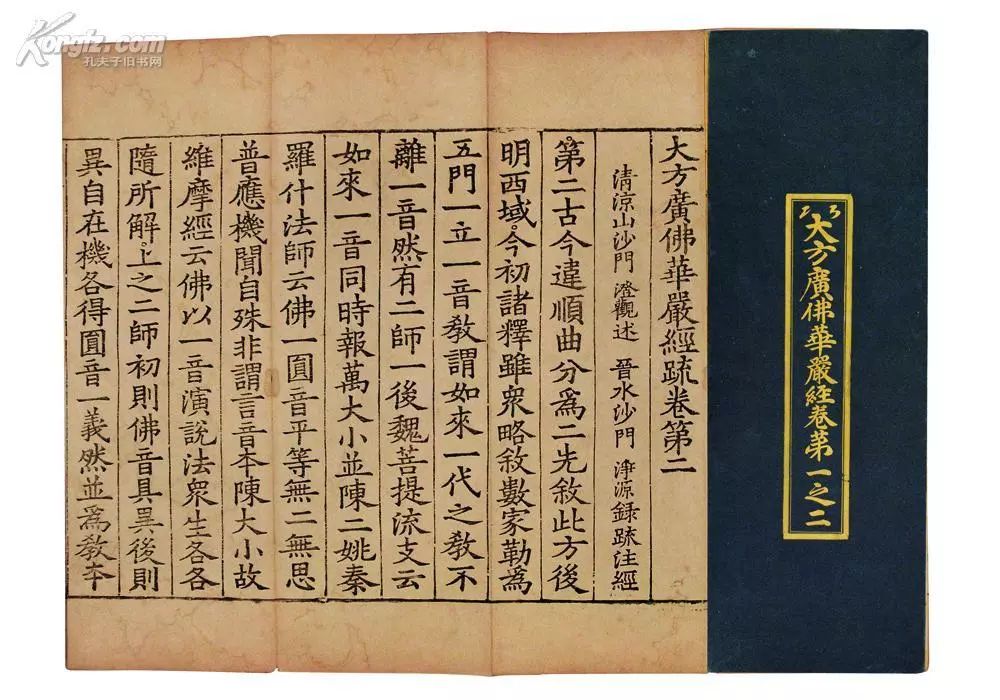 Kongfz.com
孔夫子旧书网
大方廣佛華嚴經卷苐一之二
大方廣佛華嚴經疏卷第二
清涼山沙門 澄觀述 晉水沙門 淨源録疏注經
第二古今違順曲分爲二先敘此方後
明西域今初諸釋雖衆略敘數家勒爲
五門一立一音敎謂如來一代之敎不
離一音然有二師一後魏菩提流支云
如來一音同時報萬大小並陳二姚秦
羅什法師云佛一圓音平等無二無思
普應機聞自殊非謂言音本陳大小故
維摩經云佛以一音演說法衆生各各
隨所解上之二師初則佛音具異後則
異自在機各得圓音一義然並爲敎本